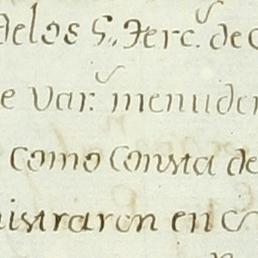 delos S.. Terc.s de
e Var.s menuden
como Consta de
istraron en